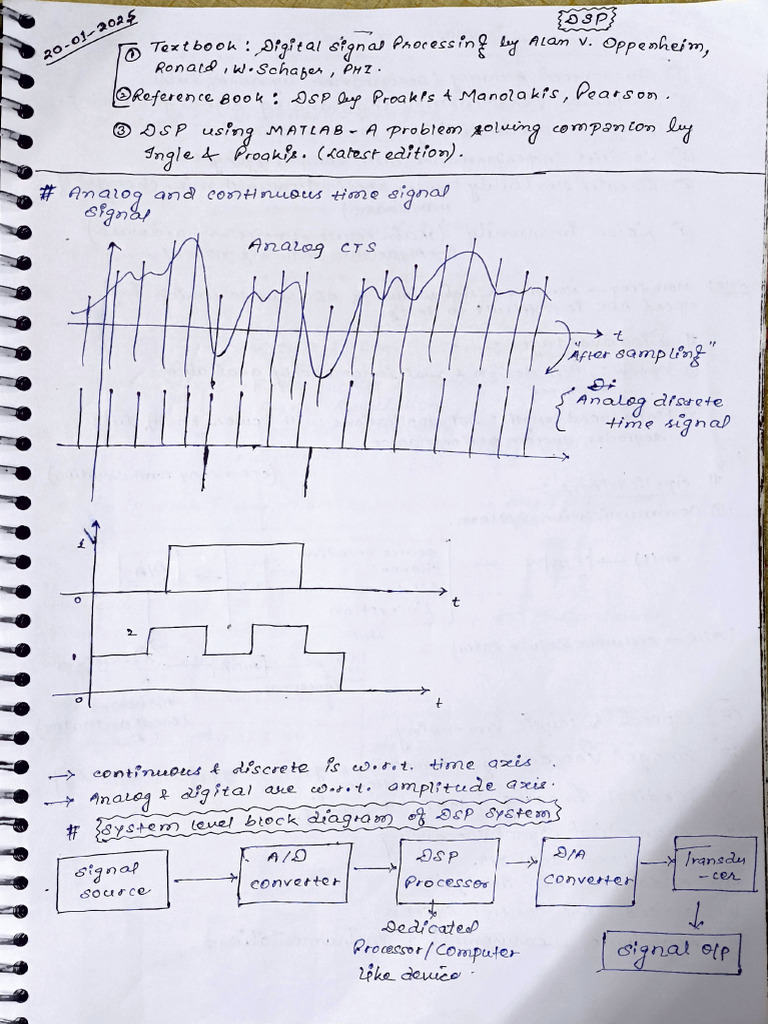 20-01-2025
DSP
① Textbook : Digital signal Processing by Alan V. Oppenheim,
Ronald, W. Schafer, PHI.
② Reference Book : DSP by Proakis & Manolakis, Pearson.
③ DSP using MATLAB - A problem solving companion by
Ingle & Proakis. (Latest edition).
# Analog and continuous time signal
signal
Analog CTS
t
"After sampling"
Di
Analog discrete
time signal
1
0
t
2
1
0
t
→ continuous & discrete is w.r.t. time axis.
→ Analog & digital are w.r.t. amplitude axis.
# System level block diagram of DSP system
signal
source
A/D
converter
DSP
Processor
D/A
converter
Transdu
-cer
Dedicated
Processor/Computer
like device.
signal O/P